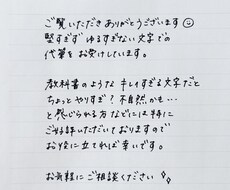 ご覧いただきありがとうございます☺
堅すぎず ゆるすぎない文字での
代筆をお受けしています。
教科書のような キレイすぎる文字だと
ちょっとやりすぎ？不自然かも…
と感じられる方などには特に
ご好評いただいておりますので
お役に立てれば幸いです。
お気軽にご相談ください